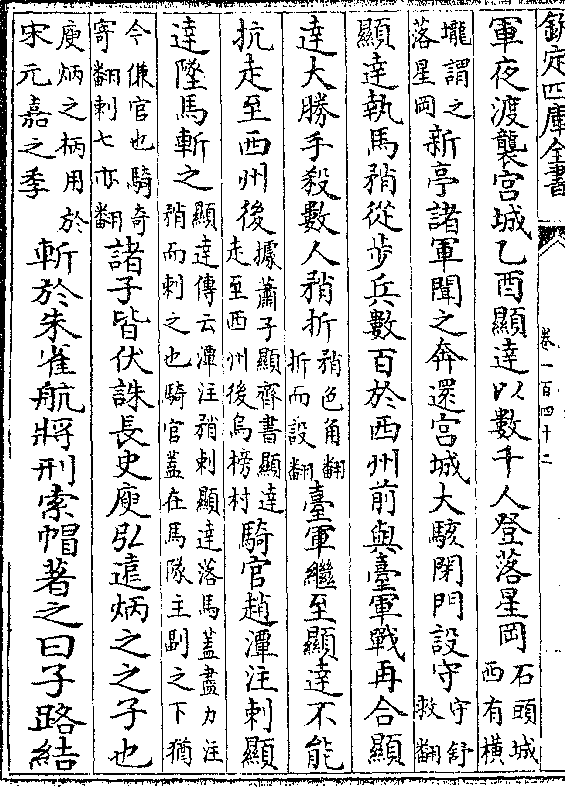 欽定四庫全書
卷一百四十二
軍夜渡襲宮城乙酉顯達以數千人登落星岡石頭城西有橫
壠謂之落星岡新亭諸軍聞之奔還宮城大駭閉門設守守舒救翻
顯達執馬矟從步兵數百於西州前與臺軍戰再合顯
達大勝手殺數人矟折矟色角翻折而設翻臺軍繼至顯達不能
抗走至西州後據蕭子顯齊書顯達走至西州後烏榜村騎官趙潭注刺顯
達墜馬斬之顯達傳云潭注矟刺顯達落馬蓋盡力注矟而刺之也騎官蓋在馬隊主副之下猶
今傔官也騎奇寄翻刺七亦翻諸子皆伏誅長史庾弘遠炳之之子也
庾炳之柄用於宋元嘉之季斬於朱雀航將刑索帽著之曰子路結